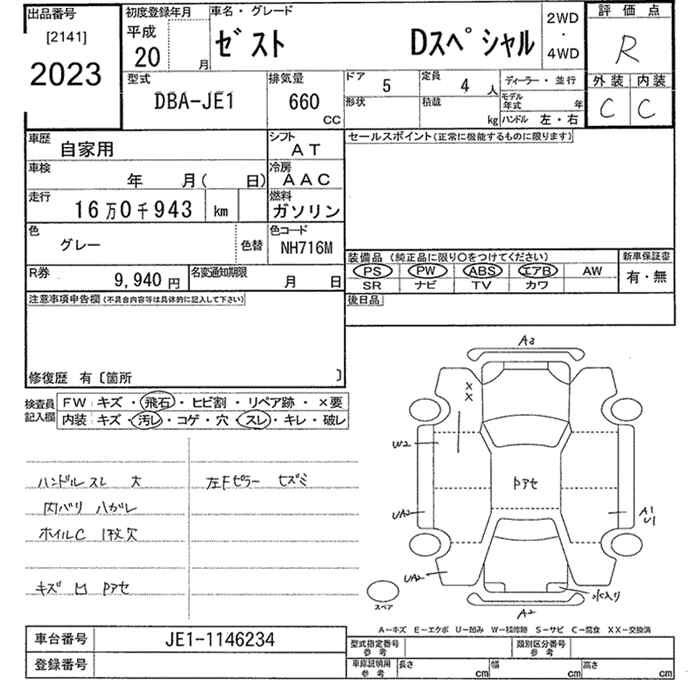 出品番号
[2141]
2023
初度登録年月
平成
20 月
車名・グレード
ゼスト Dスペシャル
2WD
・
4WD
評価点
R
型式
DBA-JE1
排気量
660
CC
ドア 5
定員 4 人
ディーラー・並行
形状
積載 kg
モデル年式 年
ハンドル 左・右
外装 内装
C C
車歴
自家用
シフト
AT
セールスポイント(正常に機能するものに限ります)
車検
年 月( 日)
冷房
AAC
走行
16万0千943 km
燃料
ガソリン
色
グレー
色替
色コード
NH716M
装備品(純正品に限り〇をつけてください)
新車保証書
PS PW ABS エアB AW
有・無
SR ナビ TV カワ
R券
9,940 円
名変通知期限
月 日
後日品
注意事項申告欄(不具合内容等は具体的に記入して下さい)
修復歴 有〔箇所 〕
検査員記入欄
FW キズ・飛石・ヒビ割・リペア跡・×要
内装 キズ・汚レ・コゲ・穴・スレ・キレ・破レ
ハンドルスレ 大
左Fピラー ヒズミ
内バリ ハガレ
ホイルC 1枚欠
キズ 凹 Pアセ
A3
×
×
W2
Pアセ
UA2
A1
U1
UA2
水入り
A2
スペア
A-キズ E-エクボ U-凹み W-補修跡 S-サビ C-腐食 XX-交換済
車台番号
JE1-1146234
登録番号
型式指定番号
参考
類別区分番号
参考
車庫証明用
参考
長さ cm
幅 cm
高さ cm